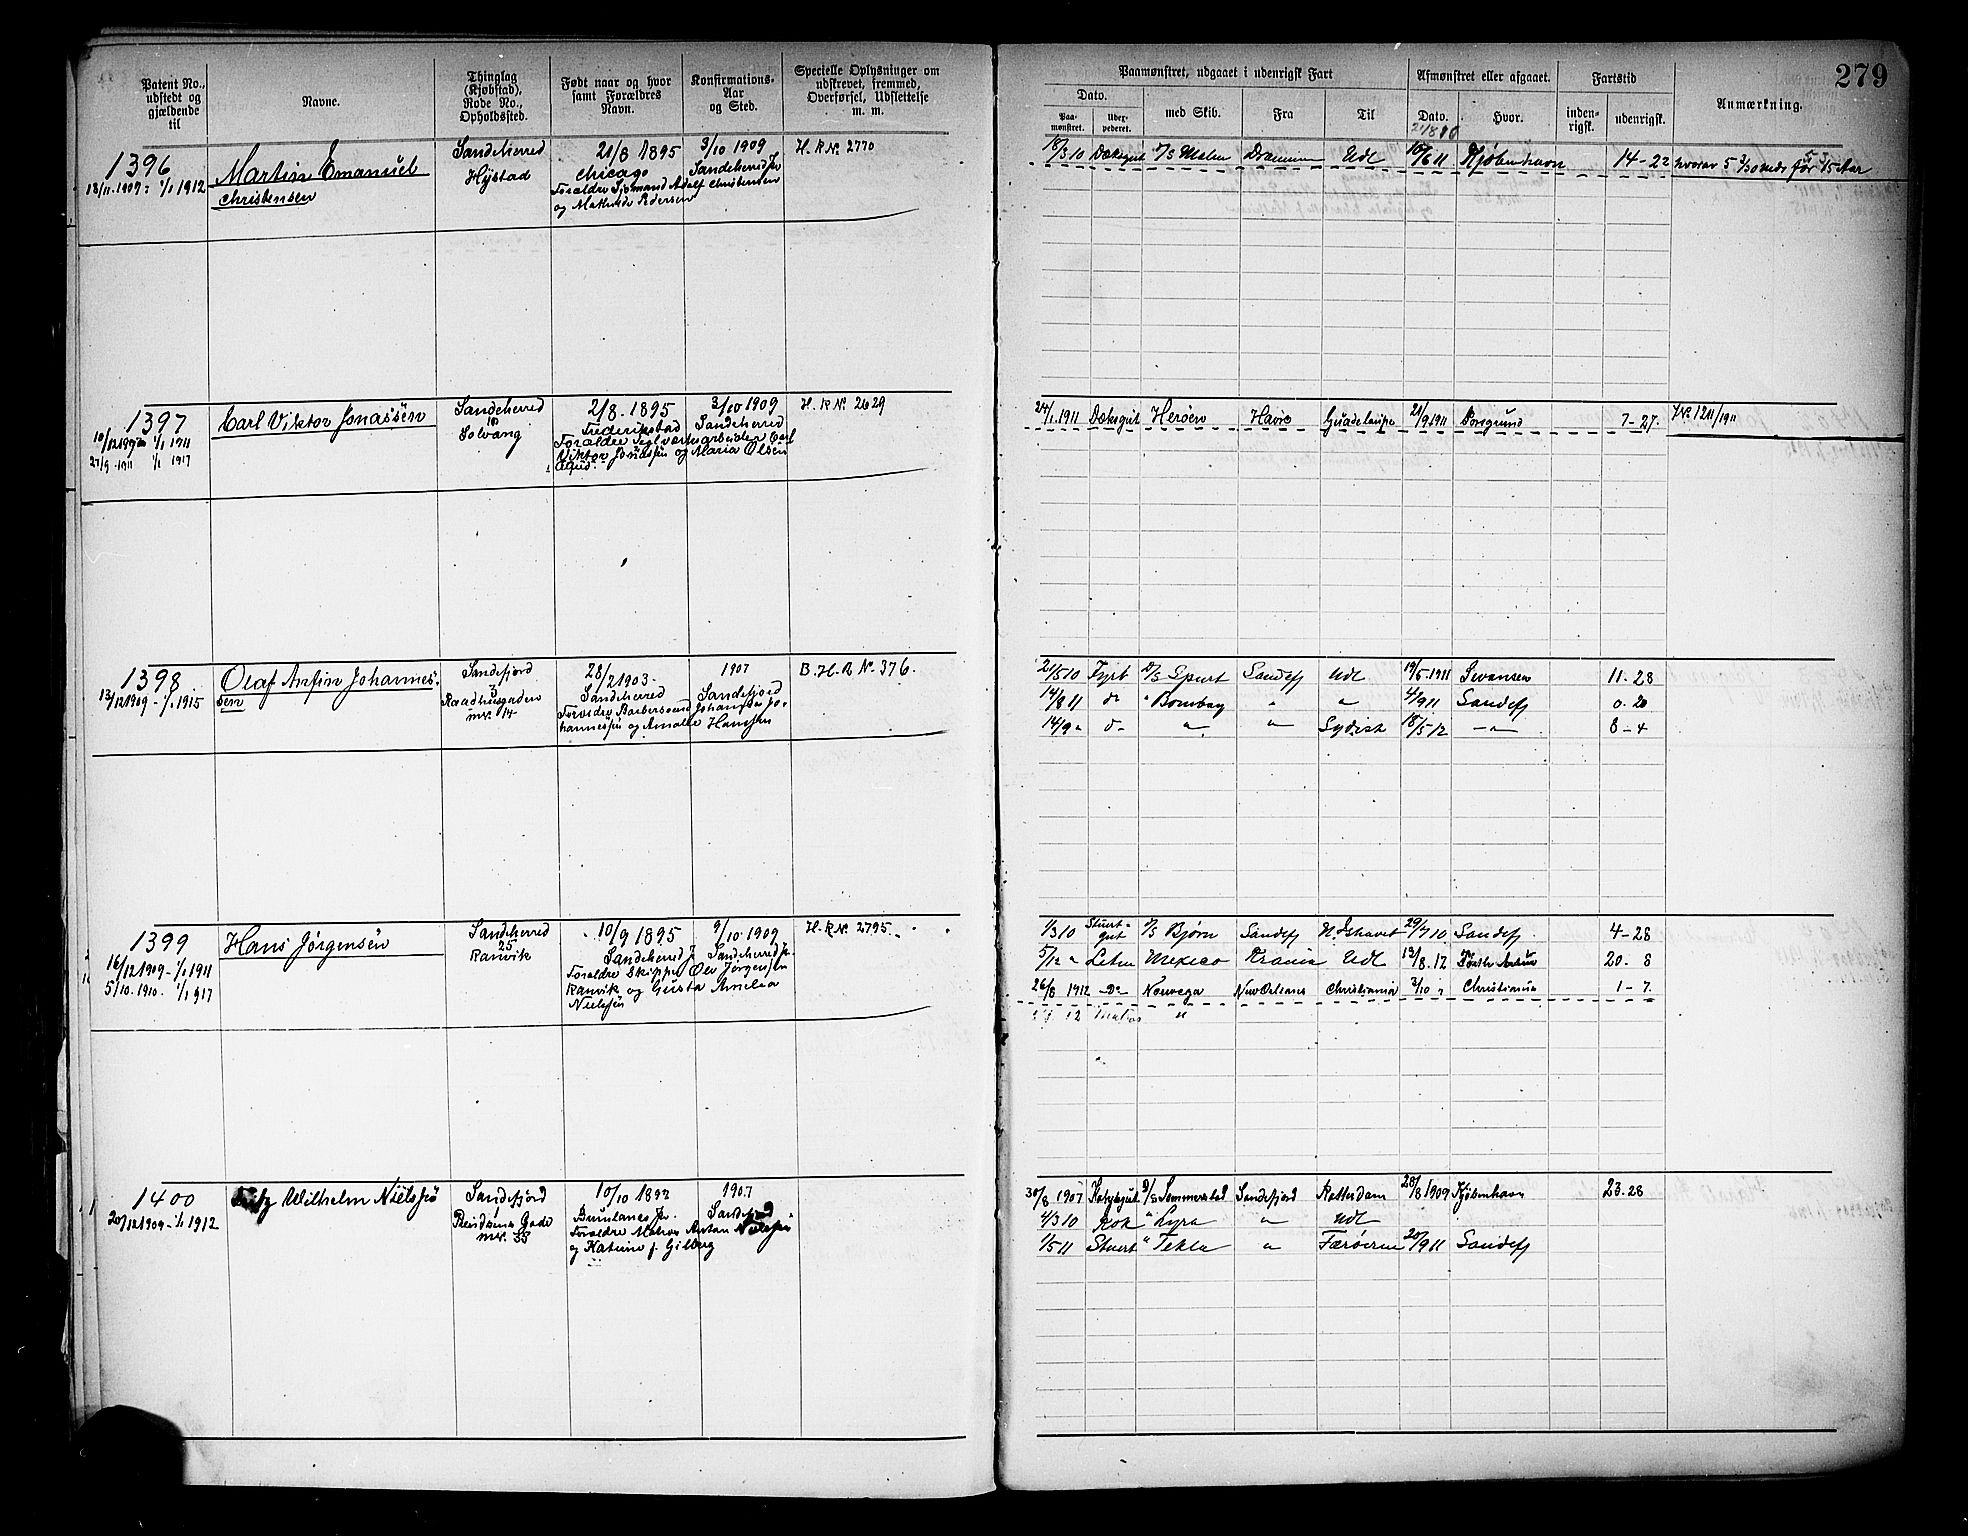 279
Patent No., udstedt og gjældende til
Navne.
Thinglag (Kjøbstad), Rode No., Opholdssted.
Født naar og hvor samt Forældres Navn.
Konfirmations-Aar og Sted.
Specielle Oplysninger om udskrevet, fremmed, Overførsel, Udslettelse m. m.
Paamønstret, udgaaet i udenrigsk Fart
Dato.
Paamønstret.
med Skib.
Fra
Til
Afmønstret eller afgaaet.
Dato.
Hvor.
Fartstid
indenrigsk.
udenrigsk.
Anmærkning.
1396 Martin Emanuel Sandeherred 21/8 1895 3/10 1909 H.R.N. 2770
18/11.1909 1/1 1912 Christensen Hystad Chicago Sandeherred
Forældre Sjømand Adolf Christensen
og Mathilde Pedersen
18/3 10 Dæksgut Drammen Udl 10/6 11 Kjøbenhavn 14-22 hvorav 5 før 15 Aar
1397 Carl Viktor Jonassen Sandeherred 2/8.1895 3/10 1909 H.R.N. 2629
10/12 1909 1/1 1911 Solvang Frederikstad Sandeherred
27/9.1911 1/1 1917 Forældre Teglverksarbeider Carl
Viktor Jonassen og Maria Olsen
24/1.1911 Dæksgut Herøen Havre Guadeloupe 21/9 1911 Porsgrund 7-27. JN. 1211/1911
1398 Olaf Anfin Johannes- Sandefjord 28/2 1903. 1907 B.H.R N. 376.
13/12 1909 - 1/1 1915 sen 3 Sandeherred Sandefjord
Raadhusgaden
nr. 14 hannessen og Amalie Hanssen
21/5 10 Fyrb Spurt Sandefj Udl 19/5.1911 Svansen 11-28
14/8 11 do " Bombay " " 4/9 11 Sandefj 0.20
14/9 " d- " " Sydish 18/5 12 -"- 8-4
1399 Hans Jørgensen Sandeherred 10/9 1895 9/10.1909 H.R.N. 2795
16/12 1909 - 1/1 1911 25 Sandeherred Sandeherred
5/10.1910. 1/1 1917 Ranvik Forældre Skipper Ole Jørgensen
Ranvik og Gusta Amalia
Nielssen
1/3 10 Stuert-gut Bjørn Sandefj N. Ishavet 29/7 10 Sandefj. 4-28
5/12 " Letm Mexico Krania Udl 19/8.12 Port Arthur 20.8
26/8 1912 -Do- Noruega New Orleans Christiania 2/10 " Christiania 1-7.
12 Matros "
1400 Fritz Wilhelm Nielssen Sandefjord 10/10 1892 1907
20/12 1909 - 1/1 1912 1 Sandefjord
Gade Forældre Matros Anton Nielssen
nr. 35 og Katrine f. Gilberg
30/8 1907 Sandefjord Rotterdam 28/8 1909 Kjøbenhavn 23-28
4/3 10 Kok " Lyra " Udl
1/5 11 Stuert " Tekla " Færøerne 20/9 11 Sandefj